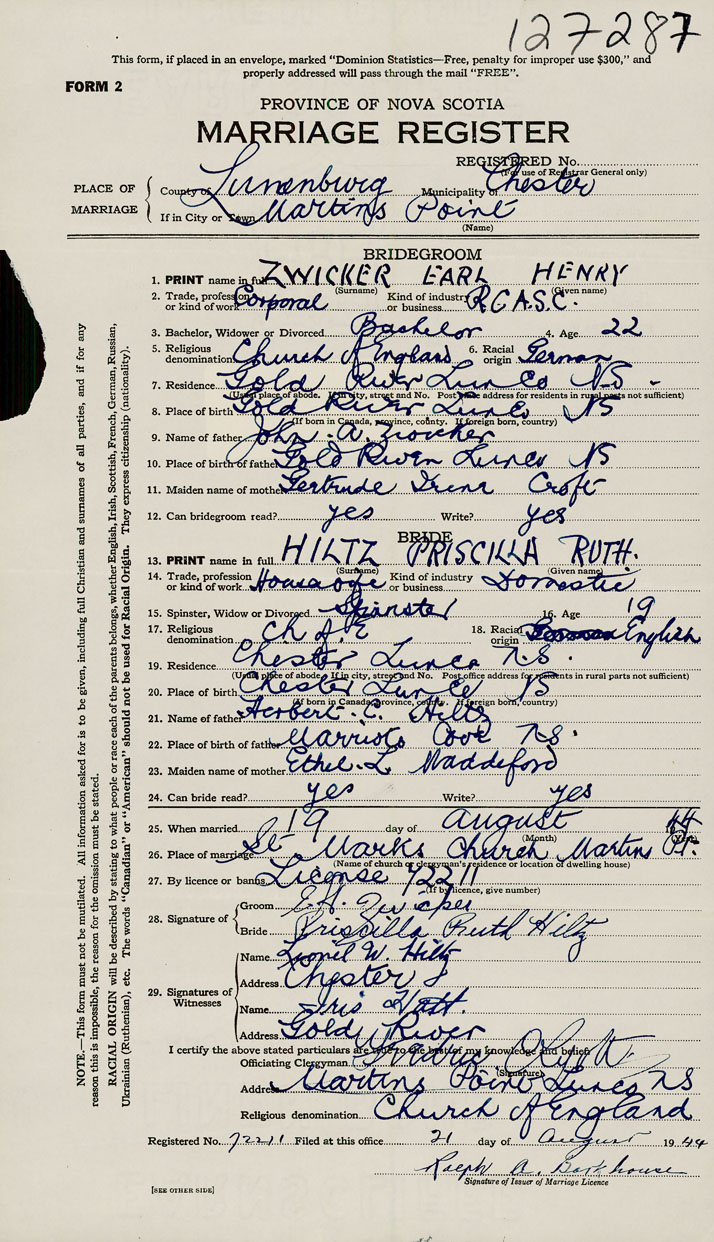 127287
This form, if placed in an envelope, marked "Dominion Statistics—Free, penalty for improper use $300," and
properly addressed will pass through the mail "FREE".
FORM 2
PROVINCE OF NOVA SCOTIA
MARRIAGE REGISTER
REGISTERED No.
(For use of Registrar General only)
PLACE OF MARRIAGE
County of Lunenburg Municipality of Chester
If in City or Town Martins Point
(Name)
BRIDEGROOM
1. PRINT name in full ZWICKER EARL HENRY
(Surname) (Given name)
2. Trade, profession or kind of work Corporal Kind of industry or business R.C.A.S.C.
3. Bachelor, Widower or Divorced Bachelor 4. Age 22
5. Religious denomination Church of England 6. Racial origin German
7. Residence Gold River Lun Co N.S.
(Usual place of abode. If in city, street and No. Post office address for residents in rural parts not sufficient)
8. Place of birth Gold River Lun Co NS
(If born in Canada, province, county. If foreign born, country)
9. Name of father John A. Zwicker
10. Place of birth of father Gold River Lun Co NS
11. Maiden name of mother Gertrude Irene Croft
12. Can bridegroom read? yes Write? yes
BRIDE
13. PRINT name in full HILTZ PRISCILLA RUTH.
(Surname) (Given name)
14. Trade, profession or kind of work Kind of industry or business Domestic
15. Spinster, Widow or Divorced Spinster 16. Age 19
17. Religious denomination Ch of E 18. Racial origin English
19. Residence Chester Lun Co N.S.
(Usual place of abode. If in city, street and No. Post office address for residents in rural parts not sufficient)
20. Place of birth Chester Lun Co NS
(If born in Canada, province, county. If foreign born, country)
21. Name of father Herbert C. Hiltz
22. Place of birth of father Marriots Cove N.S.
23. Maiden name of mother Ethel L Maddeford
24. Can bride read? yes Write? yes
25. When married 19 day of August 44
(Month) (Year)
26. Place of marriage St Marks Church Martins Pt.
(Name of church or clergyman's residence or location of dwelling house)
27. By licence or banns License 72211
(If by licence, give number)
28. Signature of
Groom E. H. Zwicker
Bride Priscilla Ruth Hiltz
29. Signatures of Witnesses
Name Lionel W. Hiltz
Address Chester
Name Iris Hatt.
Address Gold River
I certify the above stated particulars are true to the best of my knowledge and belief
Officiating Clergyman
(Signature)
Address Martins Point Lun Co NS
Religious denomination Church of England
Registered No. 72211 Filed at this office 21 day of August 1944
Ralph A. Barkhouse
Signature of Issuer of Marriage Licence
[SEE OTHER SIDE]
NOTE.—This form must not be mutilated. All information asked for is to be given, including full Christian and surnames of all parties, and if for any
reason this is impossible, the reason for the omission must be stated.
RACIAL ORIGIN will be described by stating to what people or race each of the parents belongs, whether English, Irish, Scottish, French, German, Russian,
Ukrainian (Ruthenian), etc. The words "Canadian" or "American" should not be used for Racial Origin. They express citizenship (nationality).